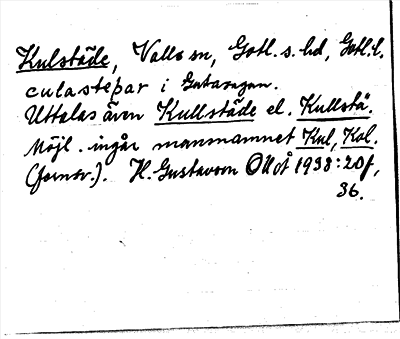 Kulstäde, Valls sn, Gotl. s. hd, Gotl. l.
culasteþar i Gutasagan.
Uttalas även Kullstäde el. Kullstä.
Möjl. ingår mansnamnet Kul, Kol.
(fornsv.). H. Gustavson OUoÅ 1938: 20 f,
36.